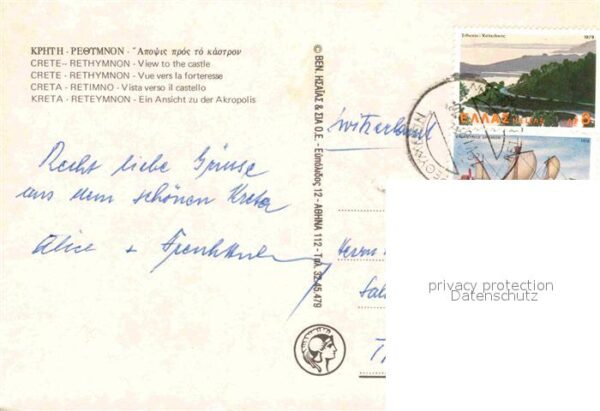 ΚΡΗΤΗ - ΡΕΘΥΜΝΟΝ - Ἄποψις πρός τό κάστρον
CRETE - RETHYMNON - View to the castle
CRETE - RETHYMNON - Vue vers la forteresse
CRETA - RETIMNO - Vista verso il castello
KRETA - RETEYMNON - Ein Ansicht zu der Akropolis
Recht liebe Grüsse
aus dem schönen Kreta
Alice +
© ΒΕΝ. ΗΣΑΪΑΣ & ΣΙΑ Ο.Ε. - Εὐπόλιδος 12 - ΑΘΗΝΑ 112 - Τηλ. 32.45.479
Switzerland
1979
ΕΛΛΑΣ HELLAS 8
privacy protection
Datenschutz